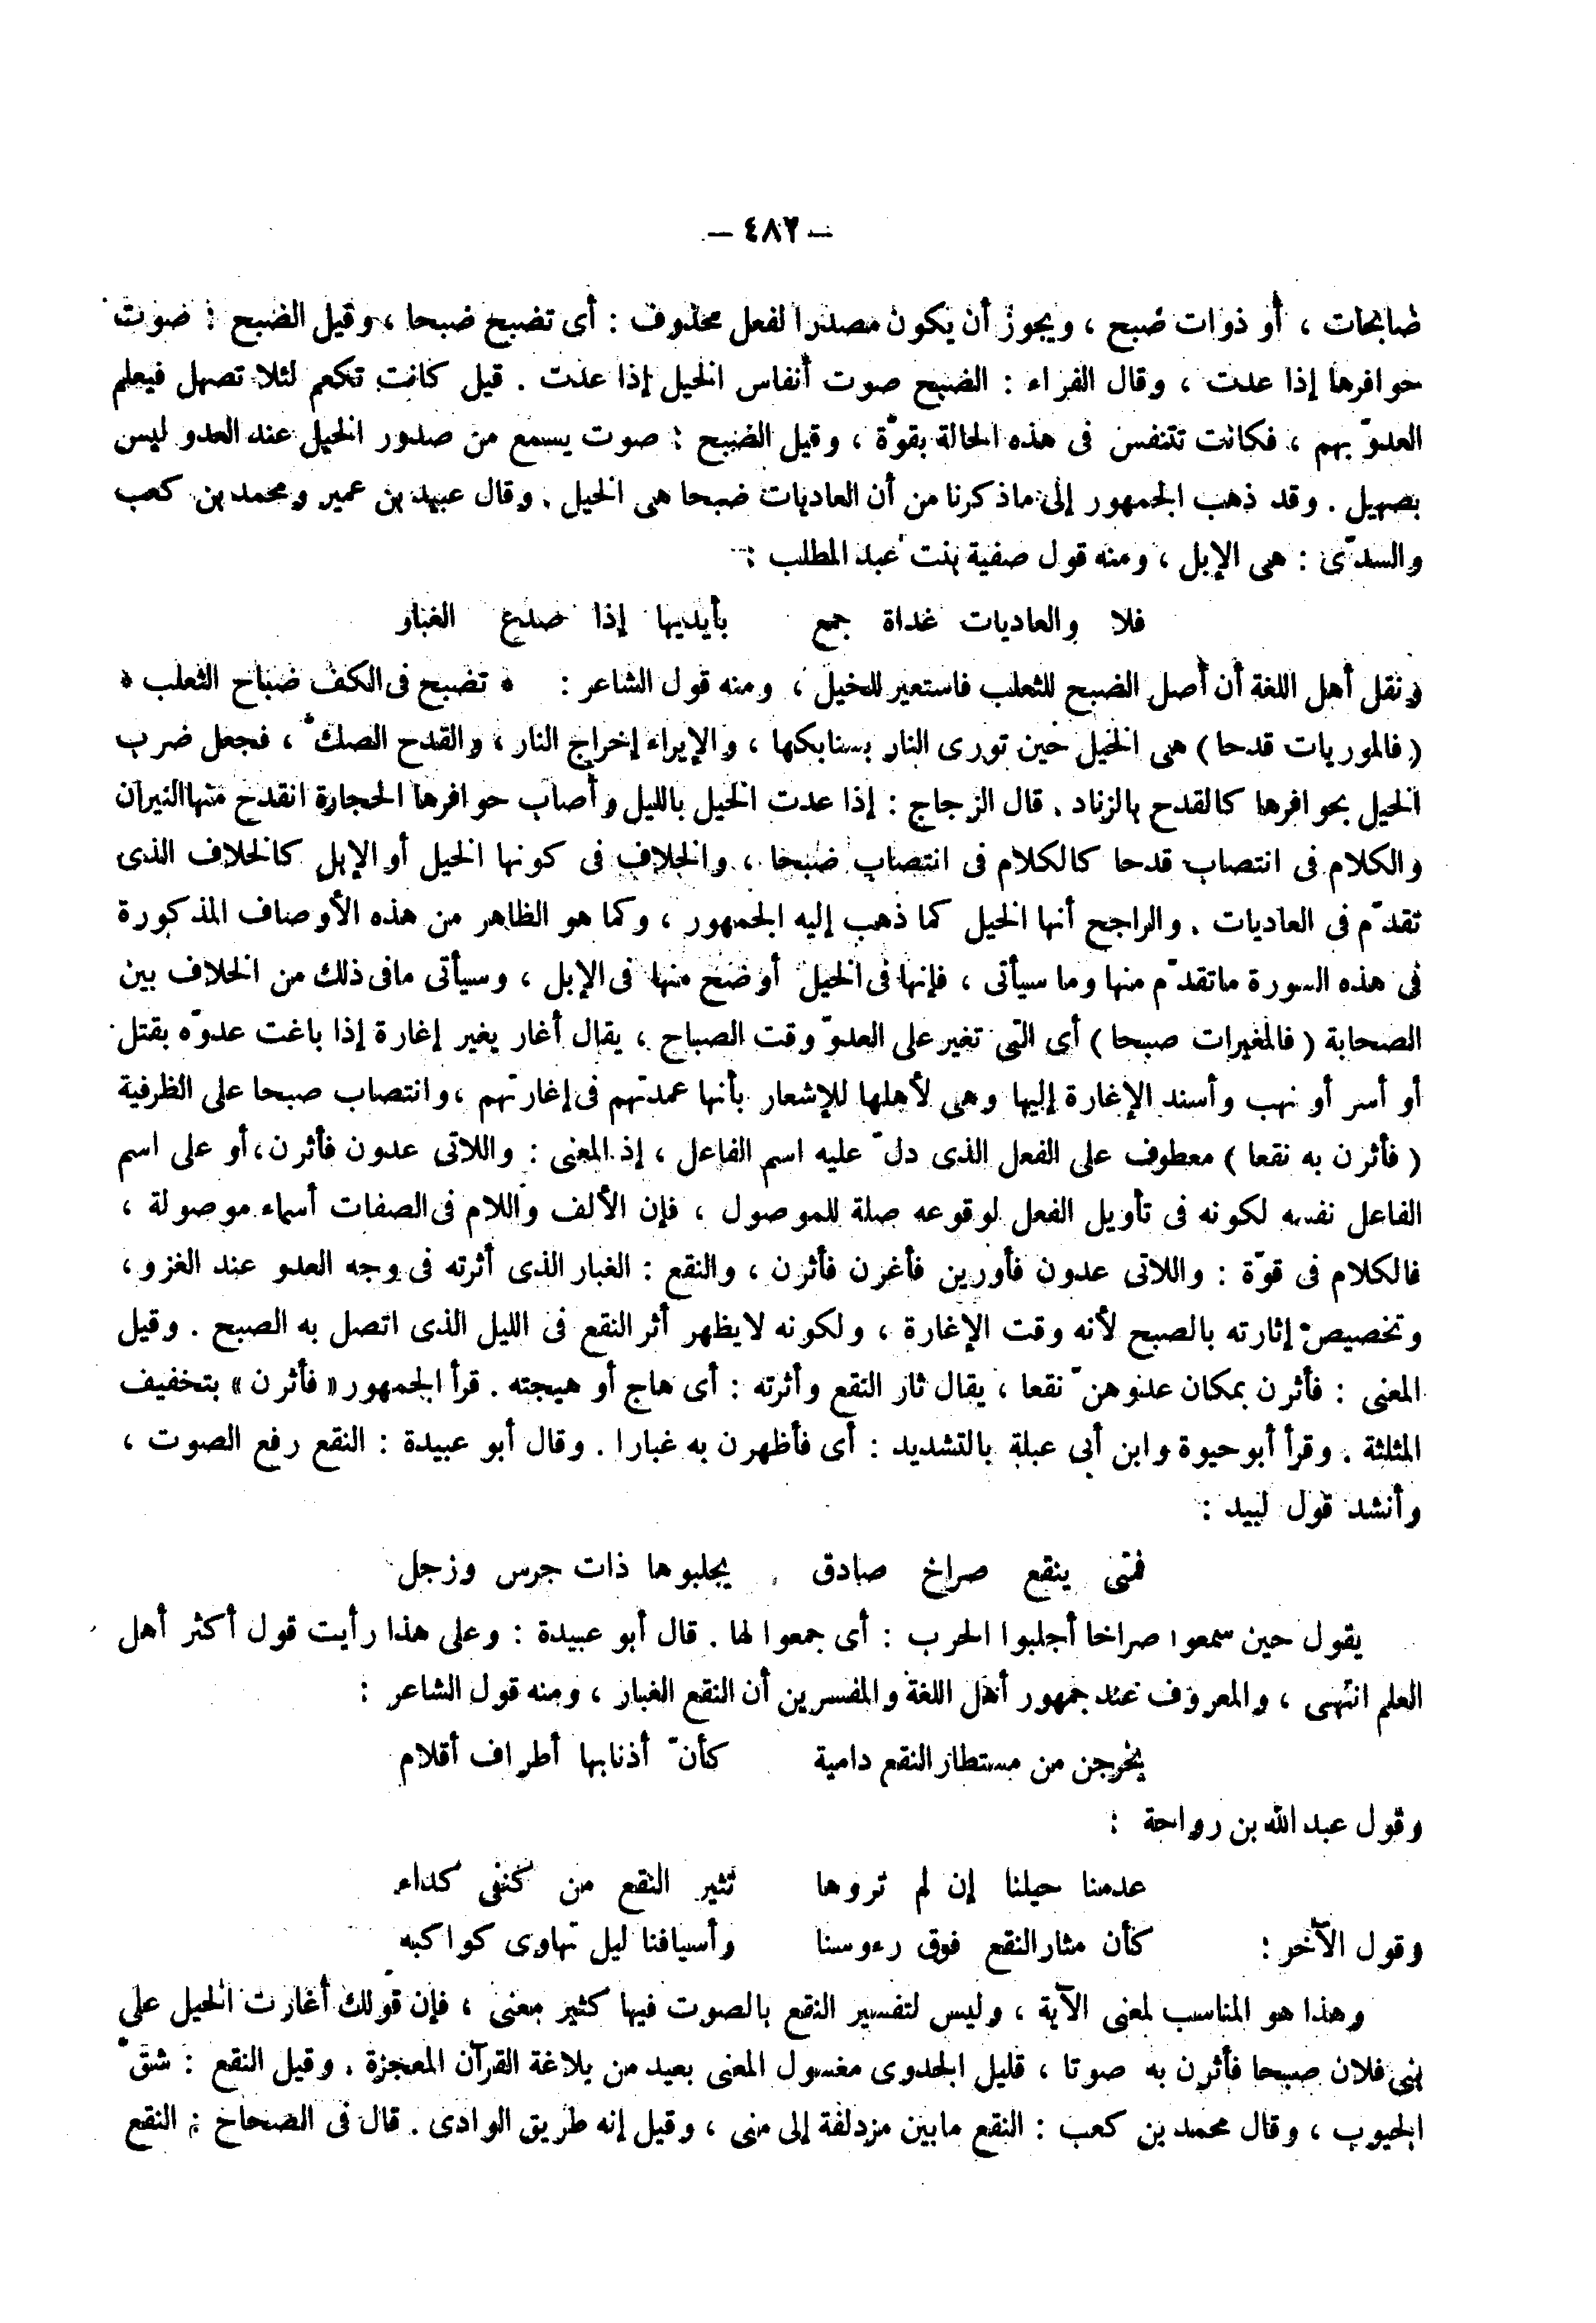 — ٤٨٢ —
ضابحات ، أو ذوات ضبح ، ويجوز أن يكون مصدرا لفعل محذوف : أى تضبح ضبحا ، وقيل الضبح : صوت
حوافرها إذا عدت ، وقال الفراء : الضبح صوت أنفاس الخيل إذا عدت . قيل كانت تكعم لئلا تصهل فيعلم
العدوّ بهم ، فكانت تتنفس فى هذه الحالة بقوّة ، وقيل الضبح : صوت يسمع من صدور الخيل عند العدو ليس
بصهيل . وقد ذهب الجمهور إلى ماذكرنا من أن العاديات ضبحا هى الخيل . وقال عبيد بن عمير ومحمد بن كعب
والسدّى : هى الإبل ، ومنه قول صفية بنت عبد المطلب :
فلا والعاديات غداة جمع بأيديها إذا صدع الغبار
ونقل أهل اللغة أن أصل الضبح للثعلب فاستعير للخيل ، ومنه قول الشاعر : * تضبح فى الكف ضباح الثعلب *
( فالموريات قدحا ) هى الخيل حين تورى النار بسنابكها ، والإيراء إخراج النار ، والقدح الصك ، فجعل ضرب
الخيل بحوافرها كالقدح بالزناد . قال الزجاج : إذا عدت الخيل بالليل وأصاب حوافرها الحجارة انقدح منها النيران
والكلام فى انتصاب قدحا كالكلام فى انتصاب ضبحا ، والخلاف فى كونها الخيل أو الإبل كالخلاف الذى
تقدّم فى العاديات . والراجح أنها الخيل كما ذهب إليه الجمهور ، وكما هو الظاهر من هذه الأوصاف المذكورة
فى هذه السورة ماتقدّم منها وما سيأتى ، فإنها فى الخيل أوضح منها فى الإبل ، وسيأتى مافى ذلك من الخلاف بين
الصحابة ( فالمغيرات صبحا ) أى التى تغير على العدوّ وقت الصباح ، يقال أغار يغير إغارة إذا باغت عدوّه بقتل
أو أسر أو نهب وأسند الإغارة إليها وهى لأهلها للإشعار بأنها عمدتهم فى إغارتهم ، وانتصاب صبحا على الظرفية
( فأثرن به نقعا ) معطوف على الفعل الذى دلّ عليه اسم الفاعل ، إذ المعنى : واللاتى عدون فأثرن، أو على اسم
الفاعل نفسه لكونه فى تأويل الفعل لوقوعه صلة للموصول ، فإن الألف واللام فى الصفات أسماء موصولة ،
فالكلام فى قوّة : واللاتى عدون فأورين فأغرن فأثرن ، والنقع : الغبار الذى أثرته فى وجه العدو عند الغزو ،
وتخصيص إثارته بالصبح لأنه وقت الإغارة ، ولكونه لايظهر أثر النقع فى الليل الذى اتصل به الصبح . وقيل
المعنى : فأثرن بمكان عدوهنّ نقعا ، يقال ثار النقع وأثرته : أى هاج أو هيجته . قرأ الجمهور « فأثرن » بتخفيف
المثلثة . وقرأ أبو حيوة وابن أبى عبلة بالتشديد : أى فأظهرن به غبارا . وقال أبو عبيدة : النقع رفع الصوت ،
وأنشد قول لبيد :
فمتى ينقع صراخ صادق يجلبوها ذات جرس وزجل
يقول حين سمعوا صراخا أجلبوا الحرب : أى جمعوا لها . قال أبو عبيدة : وعلى هذا رأيت قول أكثر أهل
العلم انتهى ، والمعروف عند جمهور أهل اللغة والمفسرين أن النقع الغبار ، ومنه قول الشاعر :
يخرجن من مستطار النقع دامية كأنّ أذنابها أطراف أقلام
وقول عبد الله بن رواحة :
عدمنا خيلنا إن لم تروها تثير النقع من كنفى كداء
وقول الآخر : كأن مثار النقع فوق رءوسنا وأسيافنا ليل تهاوى كواكبه
وهذا هو المناسب لمعنى الآية ، وليس لتفسير النقع بالصوت فيها كثير معنى ، فإن قولك أغارت الخيل على
بنى فلان صبحا فأثرن به صوتا ، قليل الجدوى مغسول المعنى بعيد من بلاغة القرآن المعجزة . وقيل النقع : شقّ
الجيوب ، وقال محمد بن كعب : النقع مابين مزدلفة إلى منى ، وقيل إنه طريق الوادى . قال فى الصحاح : النقع